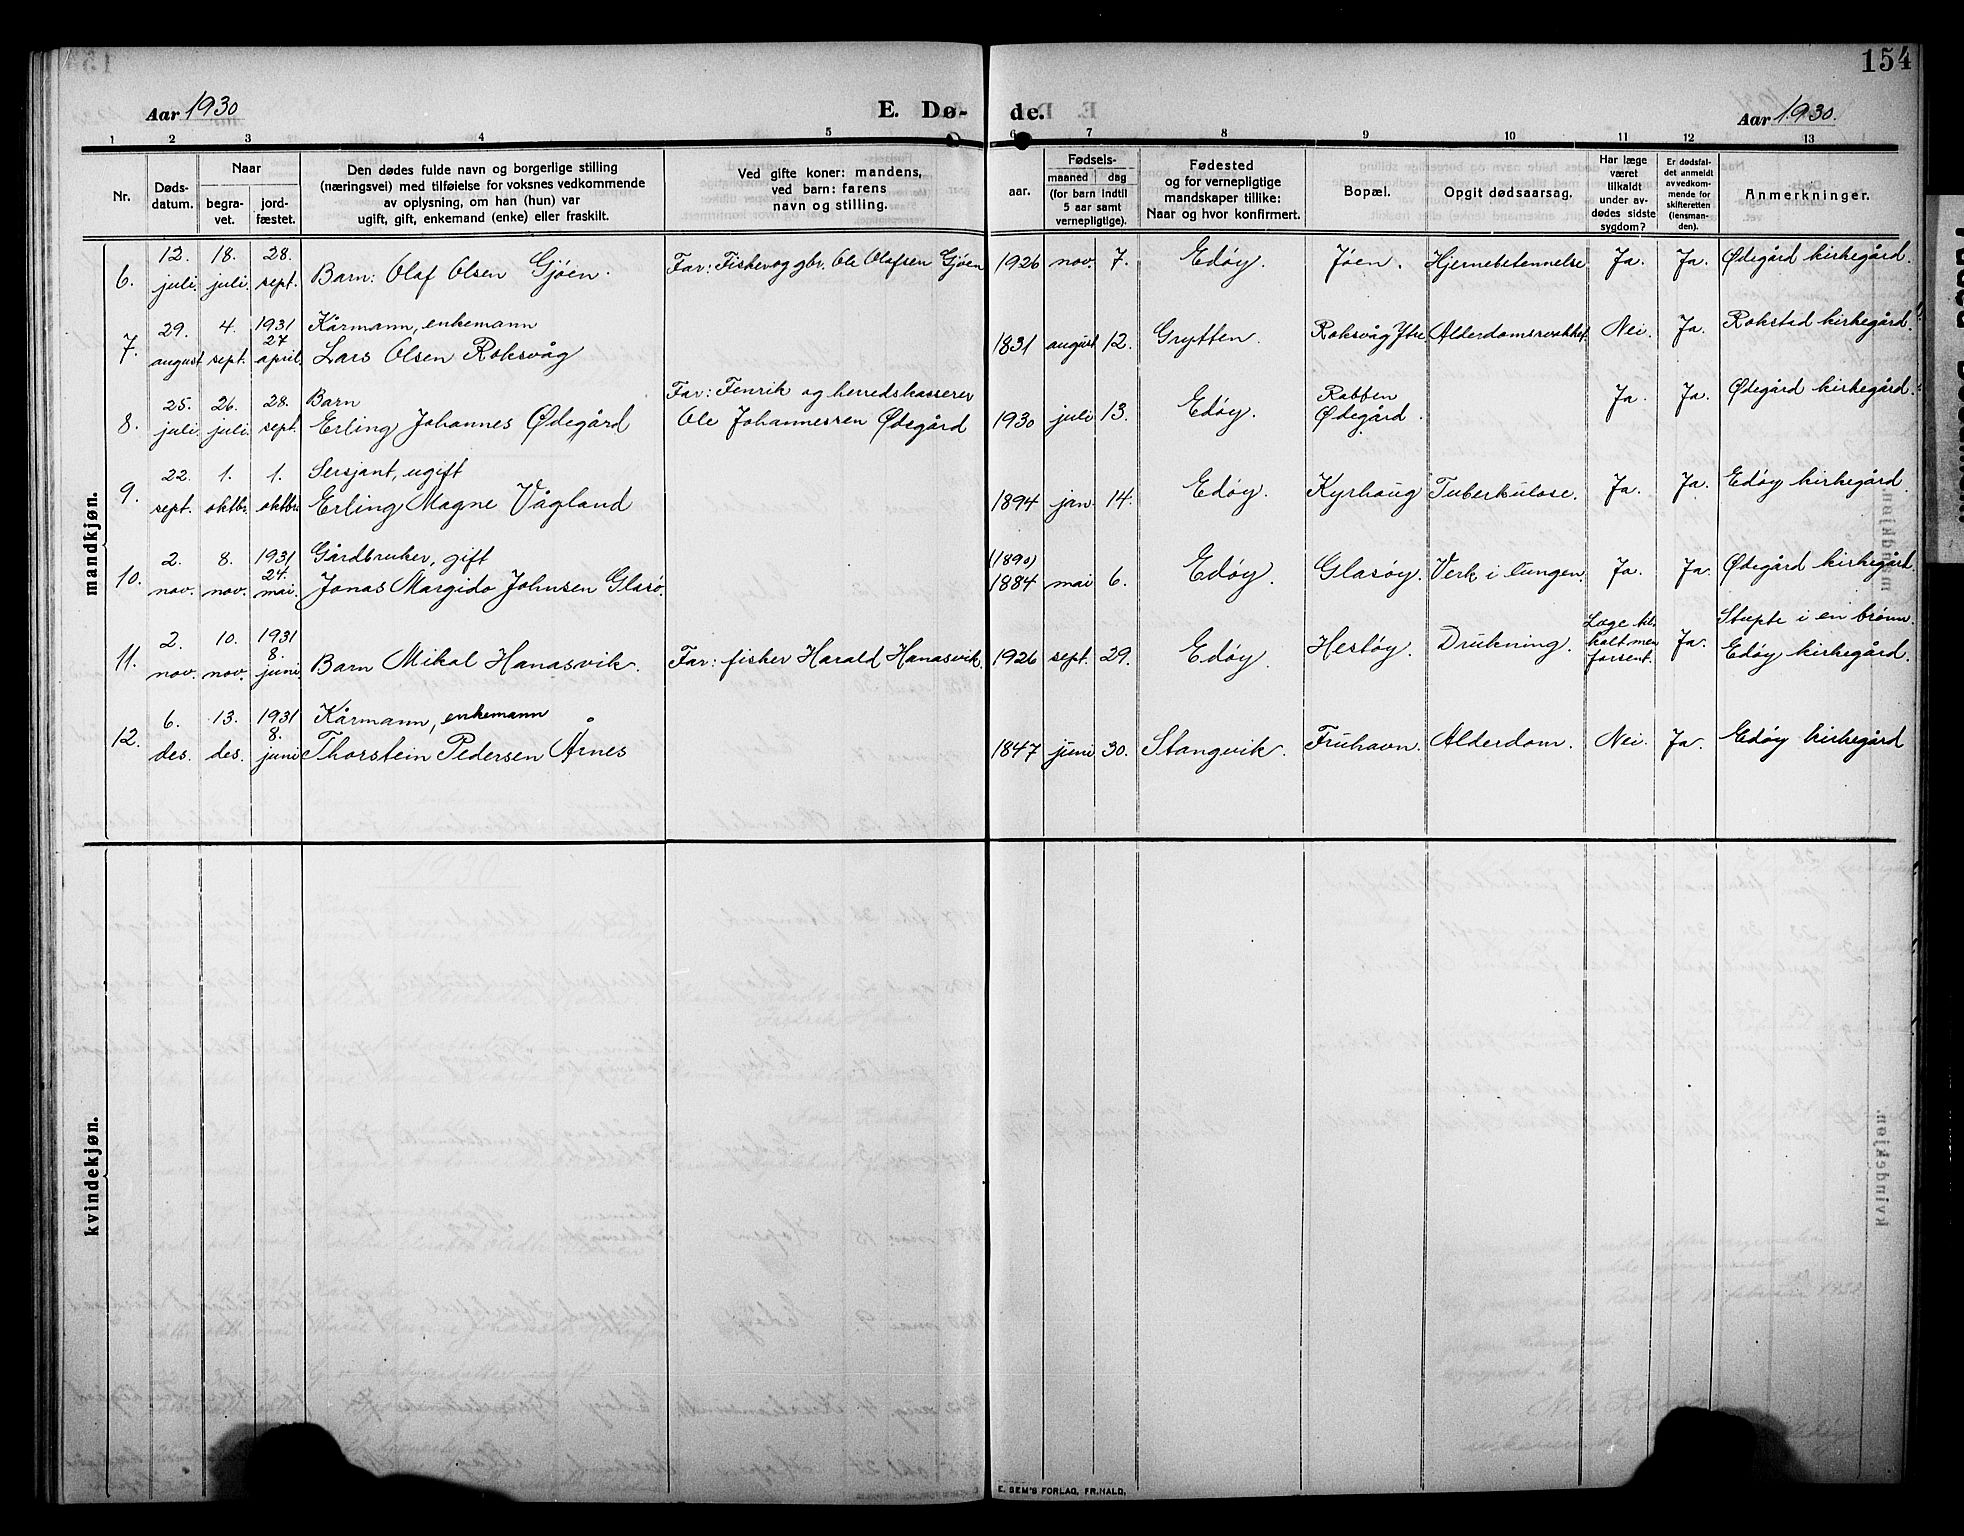 154
Aar 1930
E. Dø- de.
Aar 1930.
1 2 3 4 5 6 7 8 9 10 11 12 13
Nr.
Døds-
datum.
Naar
begra-
vet.
jord-
fæstet.
Den dødes fulde navn og borgerlige stilling
(næringsvei) med tilføielse for voksnes vedkommende
av oplysning, om han (hun) var
ugift, gift, enkemand (enke) eller fraskilt.
Ved gifte koner: mandens,
ved barn: farens
navn og stilling.
Fødsels-
aar.
maaned dag
(for barn indtil
5 aar samt
vernepligtige).
Fødested
og for vernepligtige
mandskaper tillike:
Naar og hvor konfirmert.
Bopæl.
Opgit dødsaarsag.
Har læge
været
tilkaldt
under av-
dødes sidste
sygdom?
Er dødsfal-
det anmeldt
av vedkom-
mende for
skifteretten
(lensman-
den).
Anmerkninger.
mandkjøn.
6. 12. juli. 18. juli. 28. sept. Barn: Olaf Olsen Gjøen. Far: Fisker og gbr. Ole Olafsen Gjøen 1926 nov. 7. Edøy. Jøen. Hjernebetennelse Ja. Ja. Ødegård kirkegård.
7. 29. august 4. sept. 1931 27 april. Kårmann, enkemann
Lars Olsen Roksvåg 1831 august 12. Grytten. Roksvåg Ytre Alderdomssvakhet. Nei. Ja. Rokstad kirkegård.
8. 25. juli 26. juli. 28. sept Barn
Erling Johannes Ødegård Far: Fenrik og herredskasserer
Ole Johannessen Ødegård 1930 juli 13. Edøy. Robben
Ødegård. Ja. Ja. Ødegård kirkegård.
9. 22. sept. 1. oktbr. 1. oktbr. Sersjant, ugift
Erling Magne Vågland 1894 jan. 14. Edøy. Kyrhaug Tuberkulose. Ja. Ja. Edøy kirkegård.
10. 2. nov. 8. nov. 1931 24. mai. Gårdbruker, gift
Jonas Margido Johnsen Glasø. (1890)
1884 mai 6. Edøy. Glasøy. Verk i lungen. Ja. Ja. Ødegård kirkegård.
11. 2. nov. 10. nov. 1931 8. juni Barn Mikal Hanasvik. Far: fisker Harald Hanasvik. 1926 sept. 29. Edøy. Hestøy. Drukning. Læge til-
kalt men
forsent. Ja. Støpte i en brønn
Edøy kirkegård.
12. 6. des. 13. des. 1931 8. juni Kårmann, enkemann
Thorstein Pedersen Årnes 1847 juni 30. Stangvik. Fruhavn. Alderdom. Nei. Ja. Edøy kirkegård
kvindekjøn.
E. SEM'S FORLAG, FR.HALD,